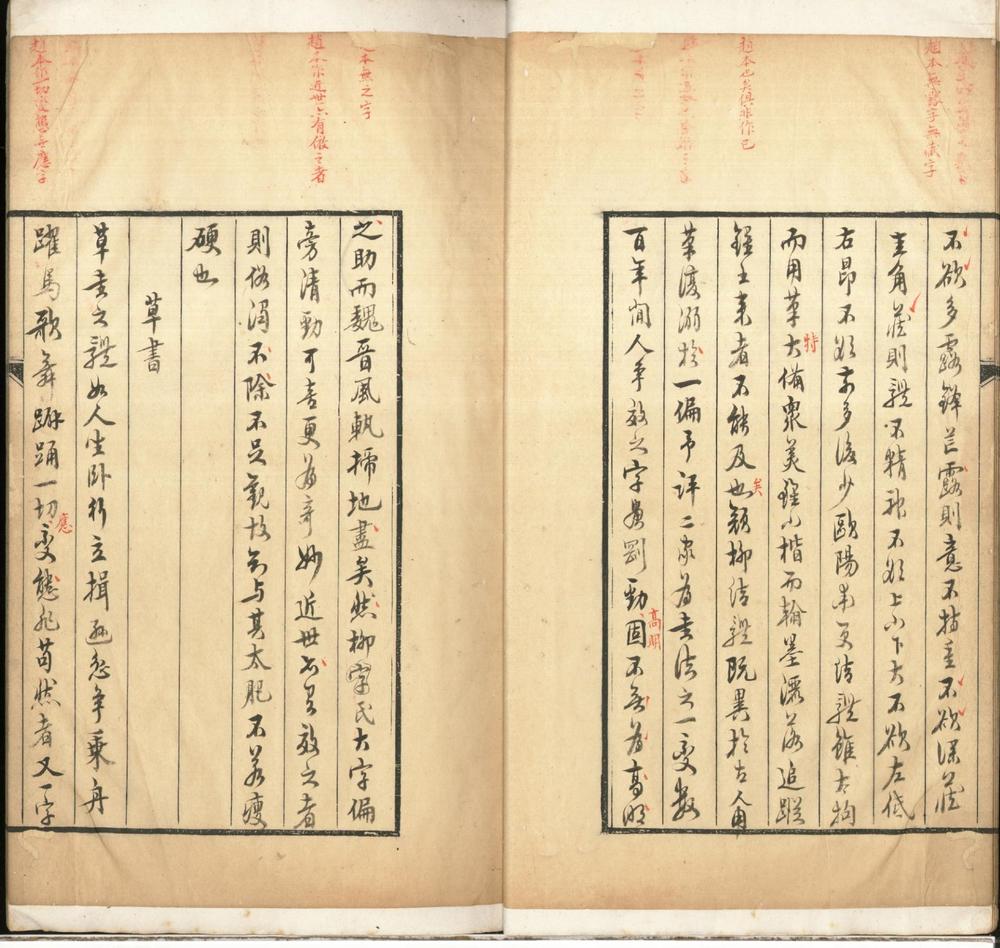 趙本無露字無藏字
趙本也矣俱非作已
不欲多露鋒芒露則意不持重不欲深藏
圭角藏則體不精神不欲上小下大不欲左低
右昂不欲前多後少歐陽率更結體雖太拘
而用筆大備衆美雖小楷而翰墨灑落追蹤
特
鍾王來者不能及也顏柳結體既異於古人用
矣
筆復溺於一偏予評二家為書法之一變數
百年間人爭效之字畫剛勁固不無為高明
高明
本無之字
趙本作近世亦有倣之者
趙本作一切變態無應字
之助而魏晉風軌掃地盡矣然柳字氏大字偏
旁清勁可喜更為奇妙近世亦有效之者
則俗濁不除不足觀故知与其太肥不若瘦
硬也
草書
草書之體如人坐卧行立揖遜忿爭乘舟
躍馬歌舞擗踊一切變態非苟然者又一字
應